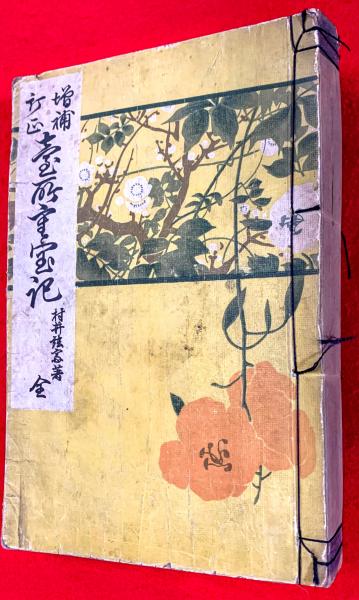 増補
訂正
臺所重宝記
村井弦斎著
全